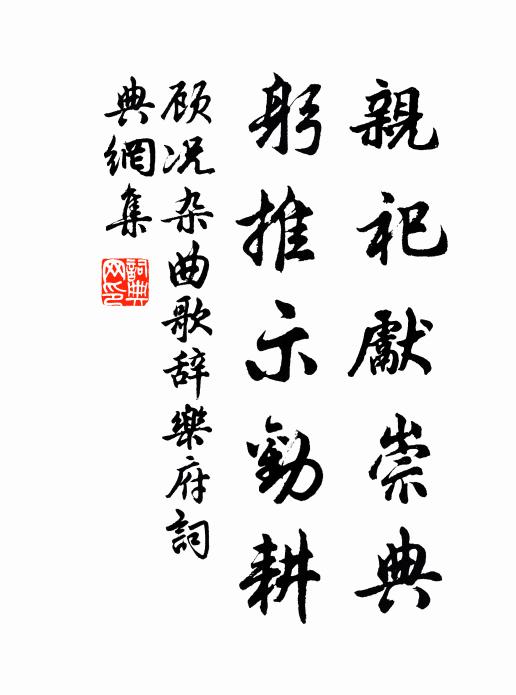 親祀獻崇典
躬推示勸耕
顾况杂曲歌辞樂府詞
典網集
詞典
网印